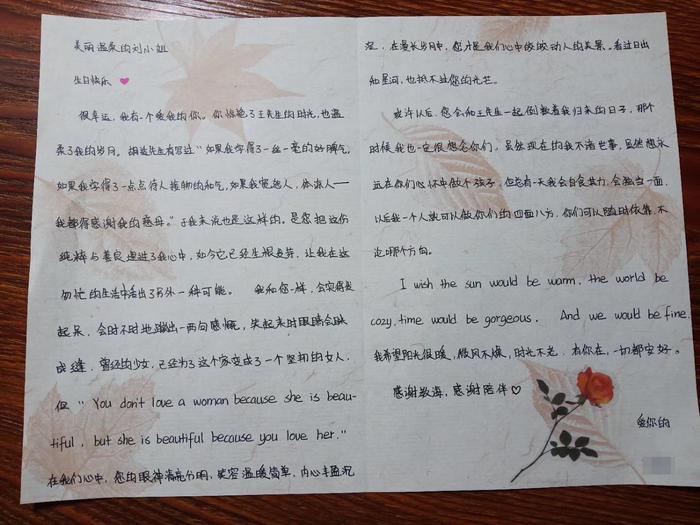 美丽温柔的刘小姐
生日快乐
很幸运，我有一个爱我的你。你惊艳了王先生的时光，也温
柔了我的岁月。胡适先生有写过“如果我学得了一丝一毫的好脾气，
如果我学得了一点点待人接物的和气，如果我宽恕人，体谅人——
我都得感谢我的慈母。”于我来说也是这样的。是您把这份
纯粹与善良速进了我心中，如今它已经生根发芽，让我在这
匆忙的生活中活出了另外一种可能。 我和您一样，会突然发
起呆，会时不时地蹦出一两句感慨，笑起来时眼睛会眯
成缝，曾经的少女，已经为了这个家变成了一个坚韧的女人，
但“You don't love a woman because she is beau-
tiful, but she is beautiful because you love her.”
在我们心中，您的眼神清亮分明，笑容温暖简单，内心丰盈沉
淀，在漫长岁月中，您才是我们心中皎皎动人的美景。看过日出
和星河，也抵不过您的光芒。
或许以后，您会和王先生一起倒数着我归来的日子，那个
时候我也一定很想念你们，虽然现在的我不谙世事，虽然想永
远在你们心怀中做个孩子，但总有一天我会自食其力，会独当一面，
以后我一个人就可以做你们的四面八方，你们可以随时依靠，不
论哪个方向。
I wish the sun would be warm, the world be
cozy, time would be gorgeous. And we would be fine.
我希望阳光很暖，微风不燥，时光不老，有你在，一切都安好。
感谢教诲，感谢陪伴♡
爱你的